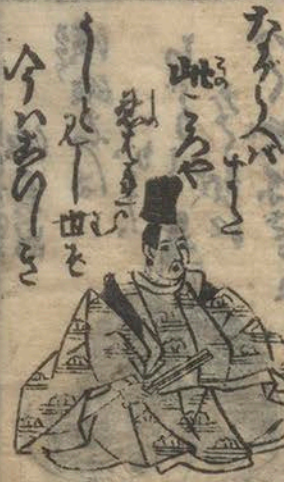 ながらへば
また
此ころや
忍ばれむ
うしと見し世ぞ
今はこひしき